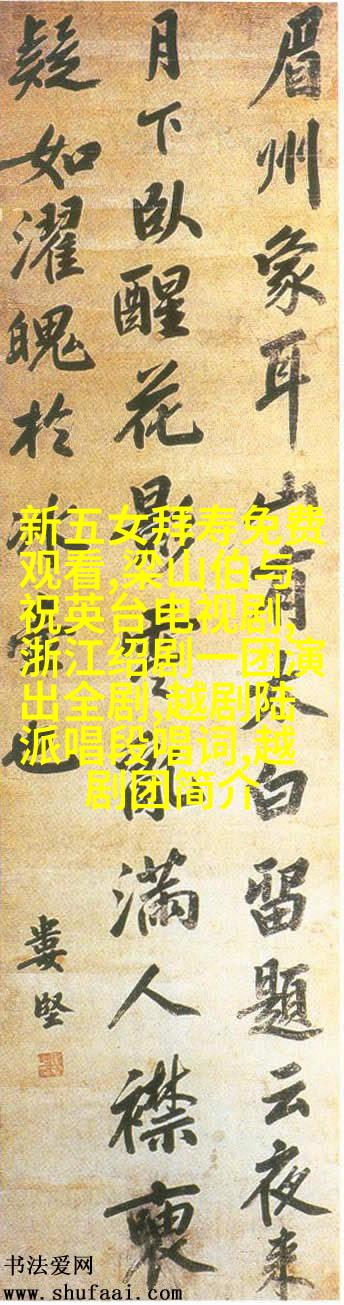 眉州象耳山有白留題云夜来
月下臥醒花影滿人襟
疑如濯魄於也
婁堅
新五女拜寿免费
观看,梁山伯与
祝英台电视剧,
浙江绍剧一团演
出全剧,越剧陆
派唱段唱词,越
剧团简介
书法爱网
www.shufaai.com